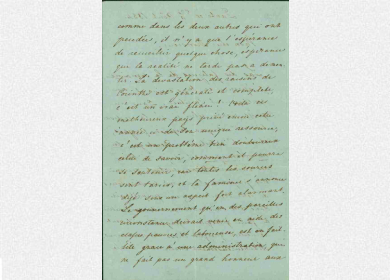 comme dans les deux autres qui ont
précédées, il n'y a que l'espérance
de recueillir quelque chose, espérance
que la réalité ne tarde pas à démen-
tir. La dévastation des raisins de
Corinthe est générale et complète,
c'est un vrai fléau! Voilà ce
malheureux pays privé encore cette
année de son unique ressource,
c'est un problème bien douloureux
celui de savoir, comment il pourra
se soutenir, car toutes les sources
sont taries, et la famine s'annonce
déjà sous un aspect fort alarmant.
Le gouvernement qui en des pareilles
circonstances devrait venir en aide des
classes pauvres et laborieuses, est en fail-
lite grâce à une administration, qui
ne fait pas un grand honneur aux